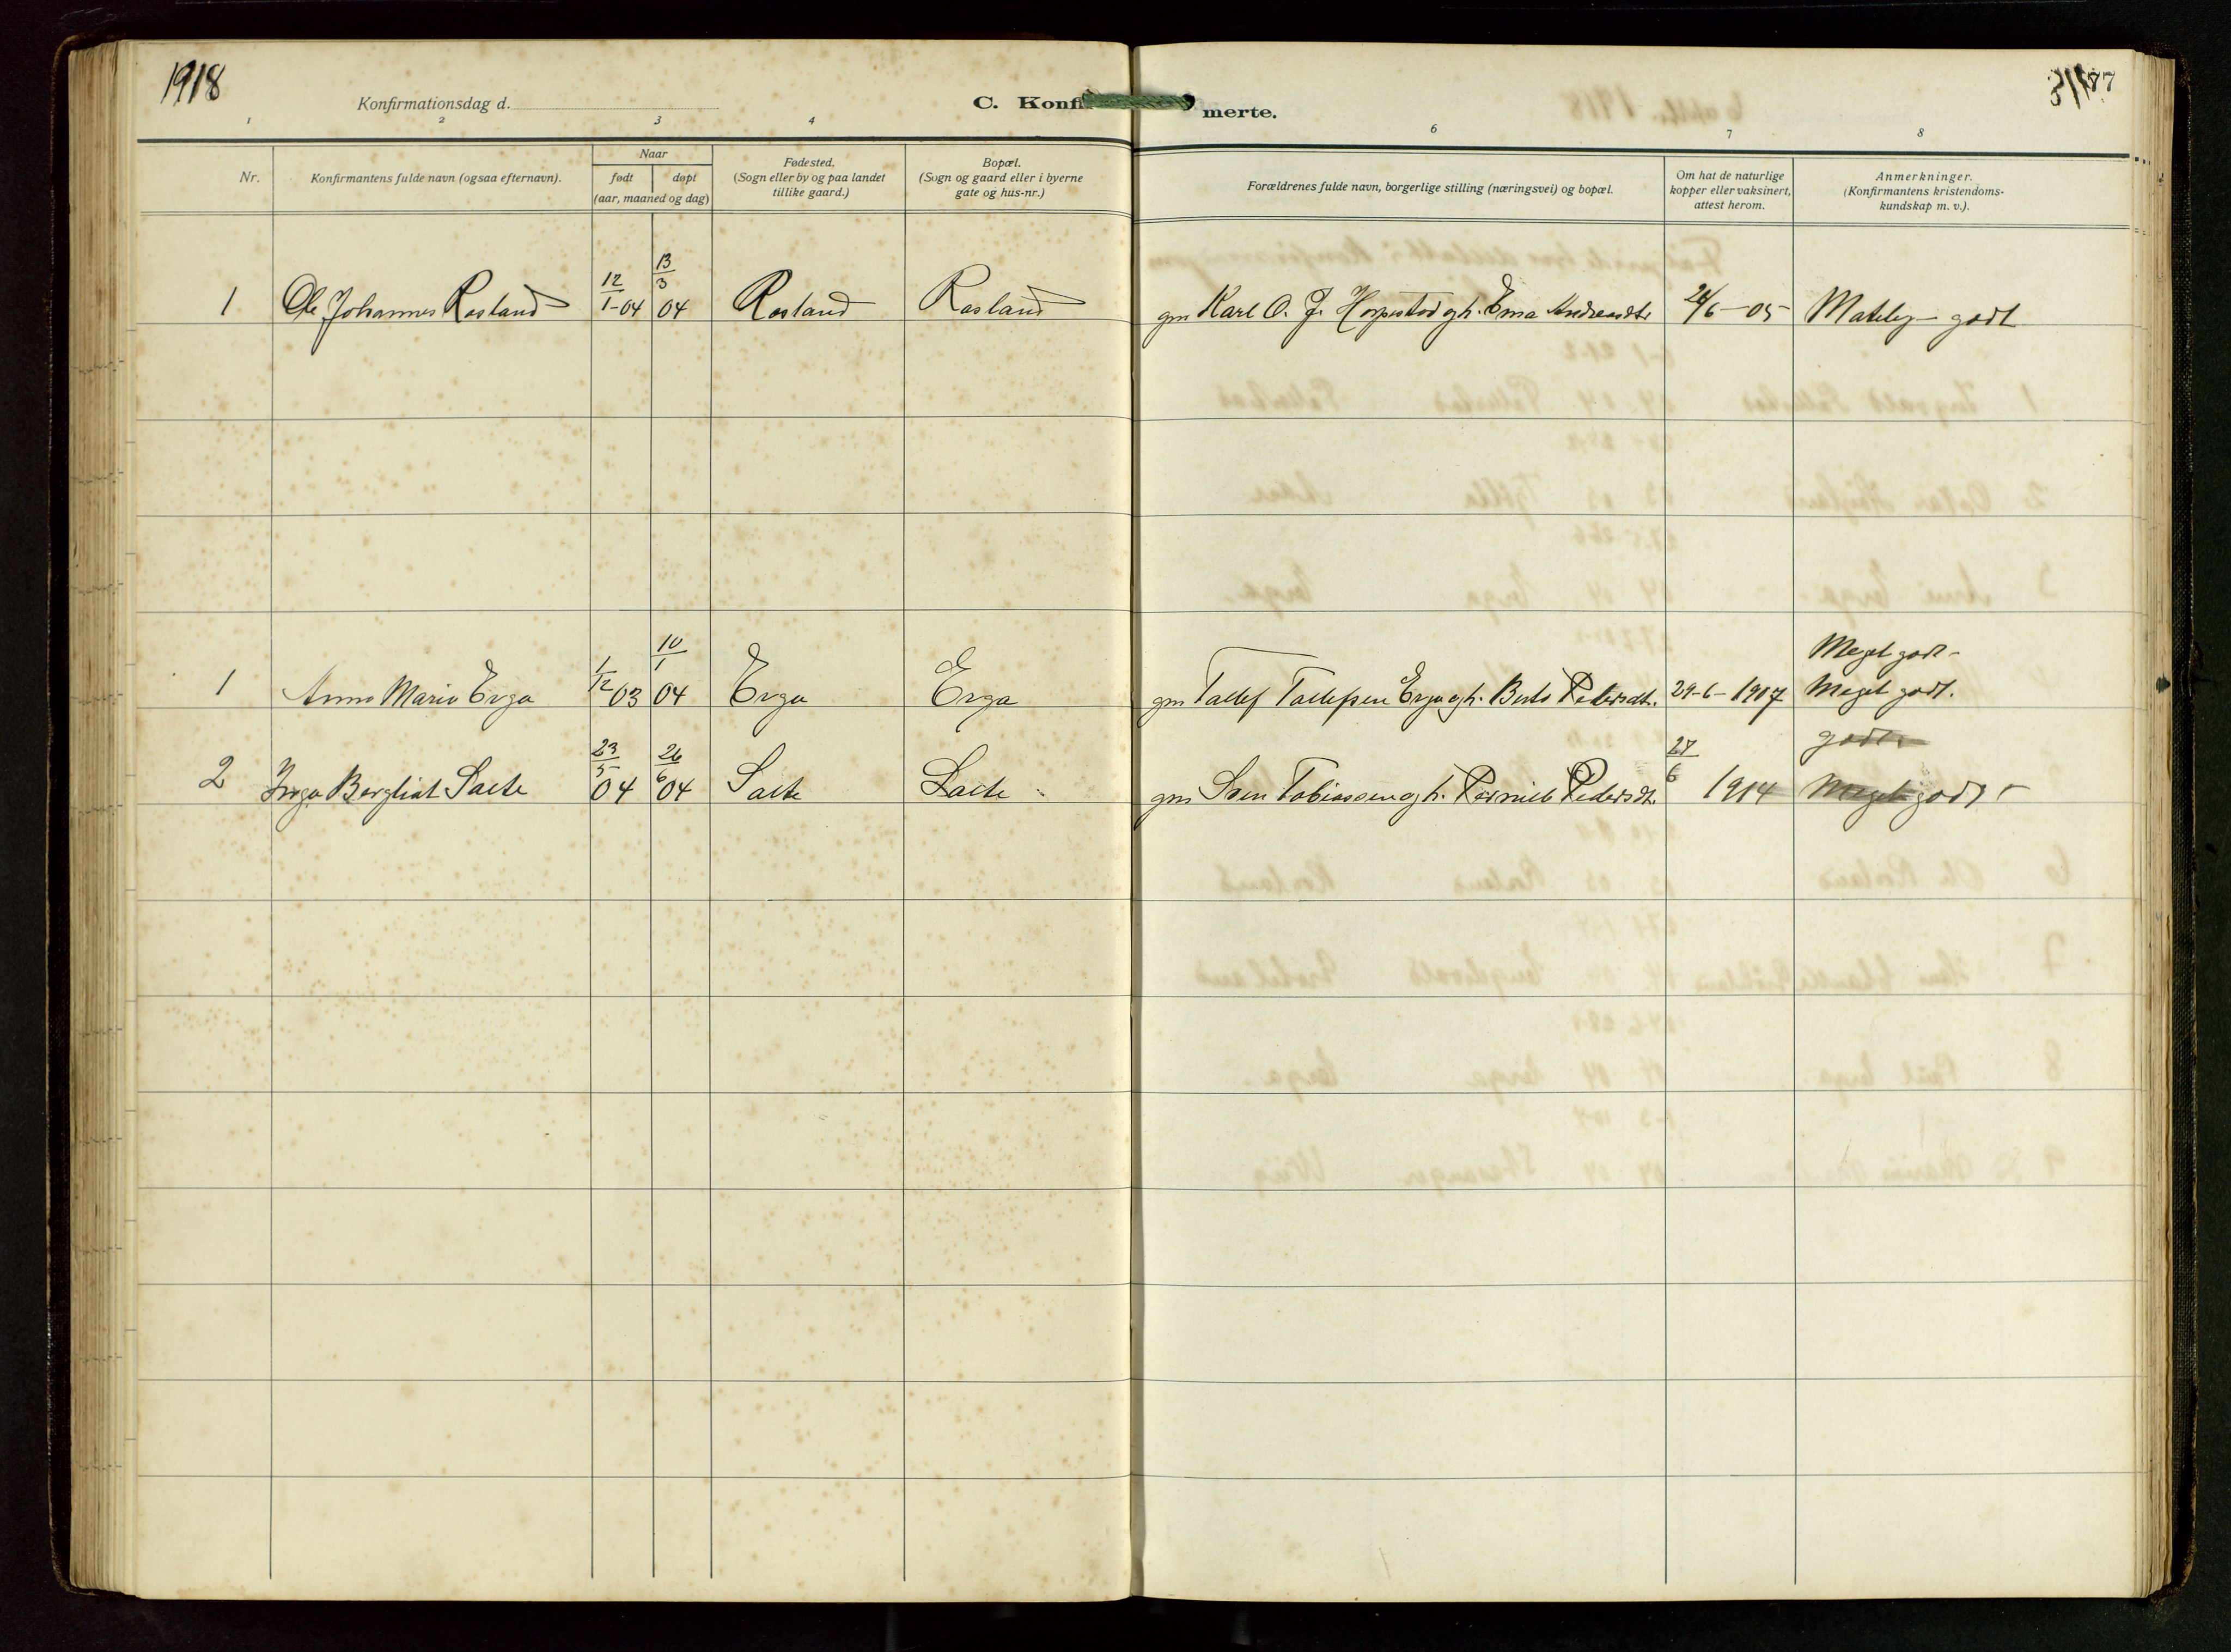 1918
Konfirmationsdag d.
C. Konfi merte.
77
1 2 3 4 6 7 8
Nr.
Konfirmantens fulde navn (ogsaa efternavn).
Naar
født
døpt
(aar, maaned og dag)
Fødested.
(Sogn eller by og paa landet
tillike gaard.)
Bopæl.
(Sogn og gaard eller i byerne
gate og hus-nr.)
Forældrenes fulde navn, borgerlige stilling (næringsvei) og bopæl.
Om hat de naturlige
kopper eller vaksinert,
attest herom.
Anmerkninger.
(Konfirmantens kristendoms-
kundskap m. v.).
1 Ole Johannes Rosland 12/1-04 13/3 04 Rosland Rosland gm Karl O. J. gh. Andreasdtr 24/6-05 godt
Meget godt-
1 Anna Maria Erga 1/12 03 10/1 04 Erga Erga gm Tallef Tallefsen Erga gh. Berta Pedersdtr. 29-6-1907 Meget godt.
godt
2 Inga Bergliot Salte 23/5 04 26/6 04 Salte Salte gm Sven Tobiassen gh. Pernille Pedersdtr. 27/6 1914 Meget godt